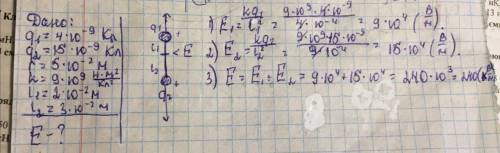 Дано:
q₁ = 4·10⁻⁹ Кл
q₂ = 15·10⁻⁹ Кл
r = 5·10⁻² м
k = 9·10⁹ Н·м²/Кл²
l₁ = 2·10⁻² м
l₂ = 3·10⁻² м
E - ?
q₁
l₁
E
l₂
+
q₂
1) E₁ = kq₁/l₁² = 9·10⁹·4·10⁻⁹/4·10⁻⁴ = 9·10⁴ (В/м).
2) E₂ = kq₂/l₂² = 9·10⁹·15·10⁻⁹/9·10⁻⁴ = 15·10⁴ (В/м).
3) E = E₁+E₂ = 9·10⁴+15·10⁴ = 240·10³ = 240 (кВ/м)